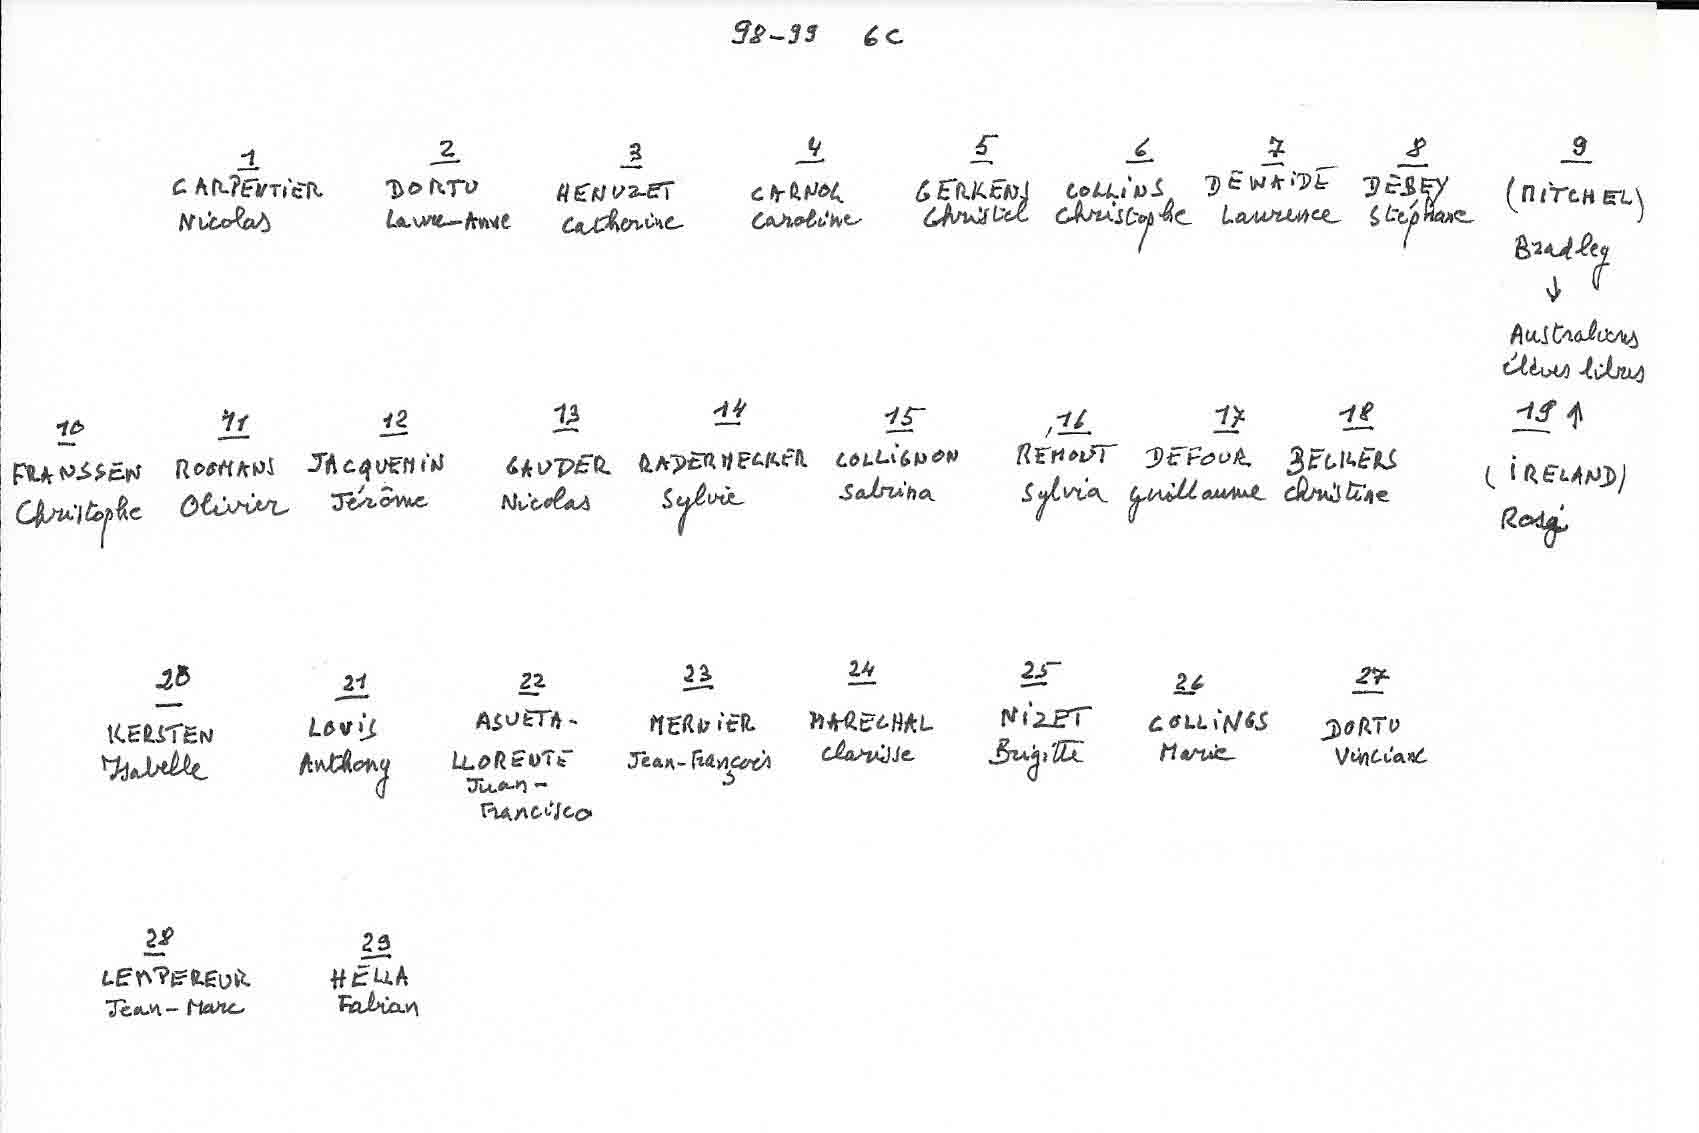 98-99 6C
1 2 3 4 5 6 7 8 9
CARPENTIER DORTU HENUZET CARNOL GERKENS COLLINS DEWAIDE DEBEY (MITCHEL)
Nicolas Laure-Anne Catherine Caroline Christel Christophe Laurence Stéphane Bradley
↓
Australiens
élèves libres
10 11 12 13 14 15 16 17 18 19 ↑
FRANSSEN ROOMANS JACQUEMIN GAUDER RADERMECKER COLLIGNON REMONT DEFOUR BECKERS (IRELAND)
Christophe Olivier Jérôme Nicolas Sylvie Sabrina Sylvia Guillaume Christine
20 21 22 23 24 25 26 27
KERSTEN LOUIS ASUETA- MERNIER MARECHAL NIZET COLLINGS DORTU
Isabelle Anthony LLORENTE Jean-François Clarisse Brigitte Marie Vinciane
Juan-
Francisco
28 29
LEMPEREUR HELLA
Jean-Marc Fabian